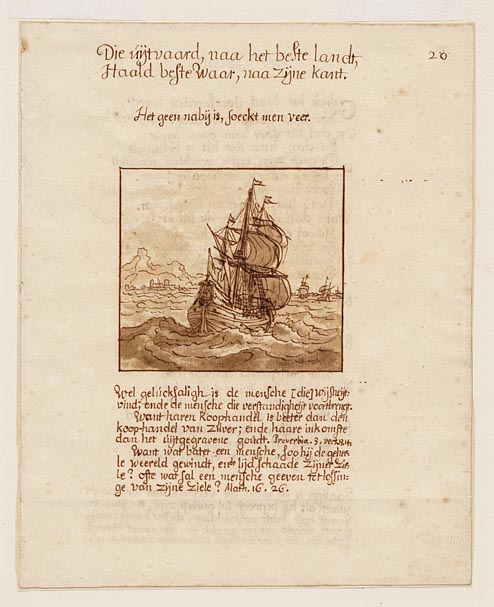 Die uijtvaard, naa het beste landt, 20
Haald beste waar, naa zijne kant.
Het geen nabij is, soeckt men veer.
Wel geluckfaligh is de mensche [die] wijsheijt
vind; ende de mensche die verstandigheijt voortbrengt.
Want haren koophandel is beeter dan den
koop-handel van zilver; ende haare inkomste
dan het uijtgegravene goudt. Proverbia. 3. vers.
Want wat batet een mensche, soo hij de gehee-
le weereld gewindt, ende lijd schaade zijner zie-
le? ofte wat sal een mensche geeven tot lossin-
ge van zijne ziele? Math. 16. 26.